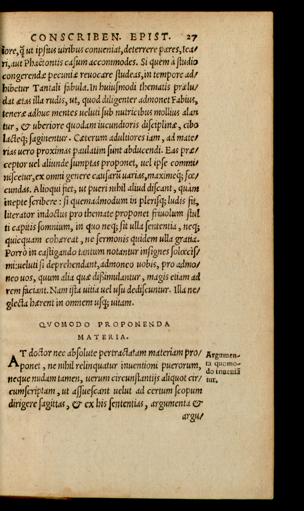 CONSCRIBEN. EPIST. 27
iore, q̃ ut ipsius uiribus conueniat, deterrere pares, tea/
ri, aut Phaëtontis casum accommodes. Si quem à studio
congerendæ pecuniæ reuocare studeas, in tempore ad/
hibetur Tantali fabula. In huiusmodi thematis prælu/
dat ætas illa rudis, ut, quod diligenter admonet Fabius,
teneræ adhuc mentes ueluti sub nutricibus mollius alan
tur, & uberiore quodam iucundioris disciplinæ, cibo
lacteq; saginentur. Cæterum adultiores iam, ad mate/
rias uero proximas paulatim sunt abducendi. Eas præ/
ceptor uel aliunde sumptas proponet, uel ipse commi
niscetur, ex omni genere causarũ uarias, maximeq; fœ/
cundas. Alioqui fiet, ut pueri nihil aliud discant, quàm
inepte scribere: si quemadmodum in plerisq; ludis fit,
literator indoctus pro themate proponet friuolum stul
ti capitis somnium, in quo neq; sit ulla sententia, neq;
quicquam cohæreat, ne sermonis quidem ulla gratia.
Porrò in castigando tantum notantur insignes solœcis/
mi: ueluti si deprehendant, admoneo uobis, pro admo/
neo uos, quum alia quæ dissimulantur, magis etiam ad
rem faciant. Nam ista uitia uel usu dediscuntur. Illa ne/
glecta hærent in omnem usq; uitam.
QVOMODO PROPONENDA
MATERIA.
AT doctor nec absolute pertractatam materiam pro/
ponet, ne nihil relinquatur inuentioni puerorum,
neque nudam tamen, uerum circunstantijs aliquot cir/
cumscriptam, ut assuescant uelut ad certum scopum
dirigere sagittas, & ex his sententias, argumenta &
argu/
Argumen-
ta quomo-
do inueniā
tur.